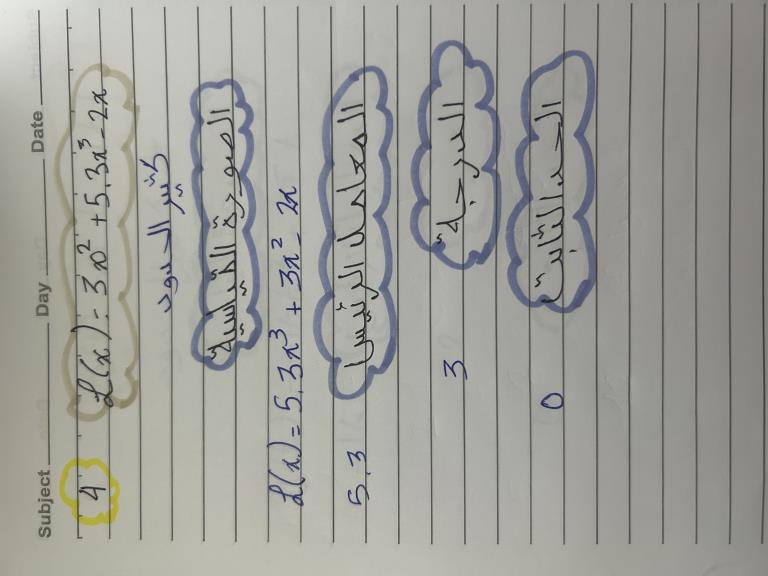 Subject Day Date
4 L(x) = 3x² + 5.3x³ - 2x
كثير الحدود
الصورة القياسية
L(x) = 5.3x³ + 3x² - 2x
المعامل الرئيسي
5.3
الدرجة
3
الحد الثابت
0